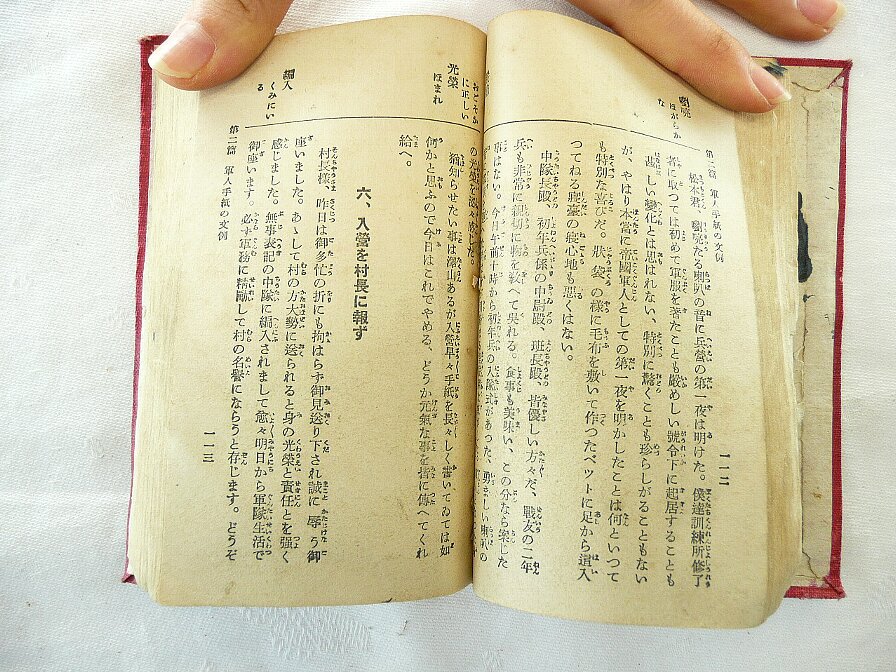 嚠喨
ほがらか
な
第二篇 軍人手紙の文例
一一二
松木君、嚠喨たる喇叭の音に兵營の第一夜は明けた。僕達訓練所修了
者に取つては初めて軍服を著たことも嚴めしい號令下に起居することも
しい變化とは思はれない、特別に驚くことも珍らしがることもない
が、やはり本當に帝國軍人としての第一夜を明かしたことは何といつて
も特別な喜びだ。狀袋の樣に毛布を敷いて作つたベットに足から這入
つてねる寢臺の寢心地も惡くはない。
中隊長殿、初年兵係の中尉殿、班長殿、皆優しい方々だ、戰友の二年
兵も非常に親切に物を敎へて吳れる。食事も美味い、この分なら案じた
事はない。今日午前十時から初年兵の入隊式があつた、勇ましい喇叭の
おごそか
に正しい
光榮
ほまれ
編入
くみにい
る
の光榮を認々感じた。
猶知らせたい事は澤山あるが入營早々手紙を長々しく書いてゐては如
何かと思ふので今日はこれでやめる、どうか元氣な事を皆に傳へてくれ
給へ。
六、入營を村長に報ず
村長樣、昨日は御多忙の折にも拘はらず御見送り下され誠に辱う御
座いました。あゝして村の方大勢に送られると身の光榮と責任とを強く
感じました。無事表記の中隊に編入されまして愈々明日から軍隊生活で
御座います。必ず軍務に精勵して村の名譽にならうと存じます。どうぞ
第二篇 軍人手紙の文例
一一三